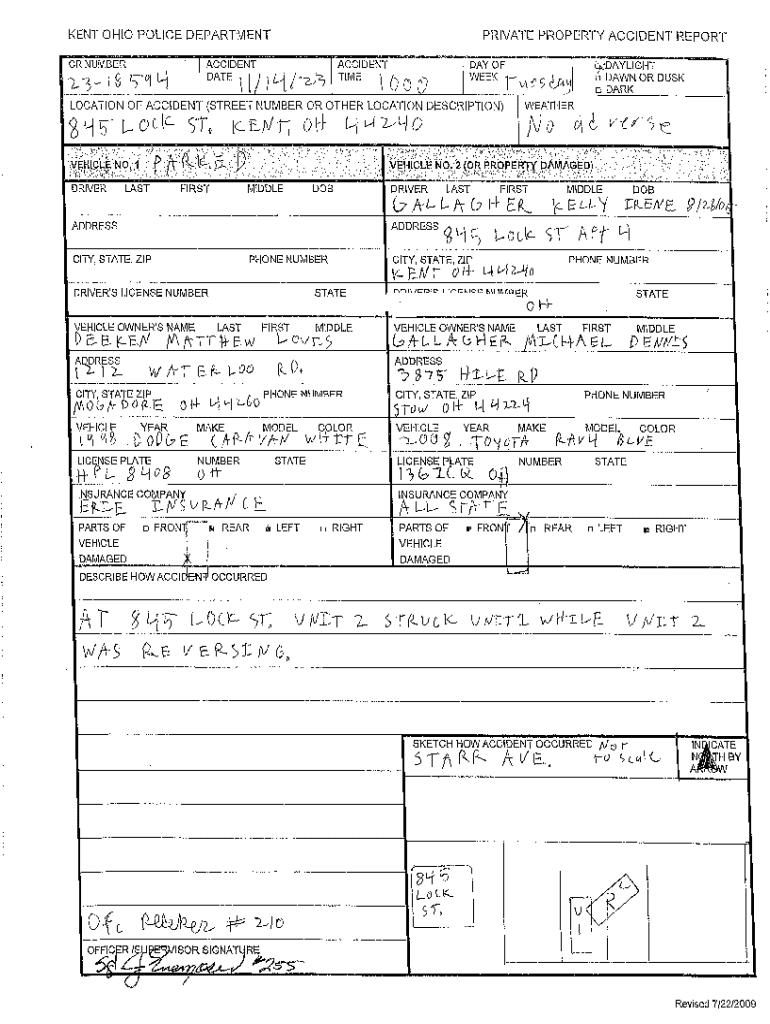 KENT OHIO POLICE DEPARTMENT PRIVATE PROPERTY ACCIDENT REPORT
CR NUMBER ACCIDENT ACCIDENT DAY OF DAYLIGHT
23-18594 DATE 11/14/23 TIME 1000 WEEK Tuesday DAWN OR DUSK
DARK
LOCATION OF ACCIDENT (STREET NUMBER OR OTHER LOCATION DESCRIPTION) WEATHER
845 LOCK ST. KENT, OH 44240 No adverse
VEHICLE NO. 1 PARKED VEHICLE NO. 2 (OR PROPERTY DAMAGED)
DRIVER LAST FIRST MIDDLE DOB DRIVER LAST FIRST MIDDLE DOB
GALLAGHER KELLY IRENE
ADDRESS ADDRESS 845 LOCK ST Apt 4
CITY, STATE, ZIP PHONE NUMBER CITY, STATE, ZIP PHONE NUMBER
KENT OH 44240
DRIVER'S LICENSE NUMBER STATE DRIVER'S LICENSE NUMBER STATE
OH
VEHICLE OWNER'S NAME LAST FIRST MIDDLE VEHICLE OWNER'S NAME LAST FIRST MIDDLE
DEEKEN MATTHEW LOUIS GALLAGHER MICHAEL DENNIS
ADDRESS ADDRESS
1212 WATERLOO RD. 3875 HILE RD
CITY, STATE ZIP PHONE NUMBER CITY, STATE, ZIP PHONE NUMBER
MOGADORE OH 44260 STOW OH 44224
VEHICLE YEAR MAKE MODEL COLOR VEHICLE YEAR MAKE MODEL COLOR
1998 DODGE CARAVAN WHITE 2008 TOYOTA RAV4 BLUE
LICENSE PLATE NUMBER STATE LICENSE PLATE NUMBER STATE
HPL 8408 OH OH
INSURANCE COMPANY INSURANCE COMPANY
ERIE INSURANCE ALL STATE
PARTS OF FRONT REAR LEFT RIGHT PARTS OF FRONT REAR LEFT RIGHT
VEHICLE VEHICLE
DAMAGED X DAMAGED
DESCRIBE HOW ACCIDENT OCCURRED
AT 845 LOCK ST. UNIT 2 STRUCK UNIT 1 WHILE UNIT 2
WAS REVERSING.
SKETCH HOW ACCIDENT OCCURRED Not INDICATE
STARR AVE. to scale NORTH BY
ARROW
845
LOCK
ST.
Ofc #210
OFFICER / SUPERVISOR SIGNATURE
#255
Revised 7/22/2009